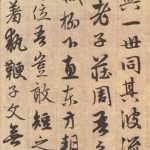 與一世同其波流
老子莊周吾之
柳下惠東方朔
位吾豈敢短之
羞執鞭子文無